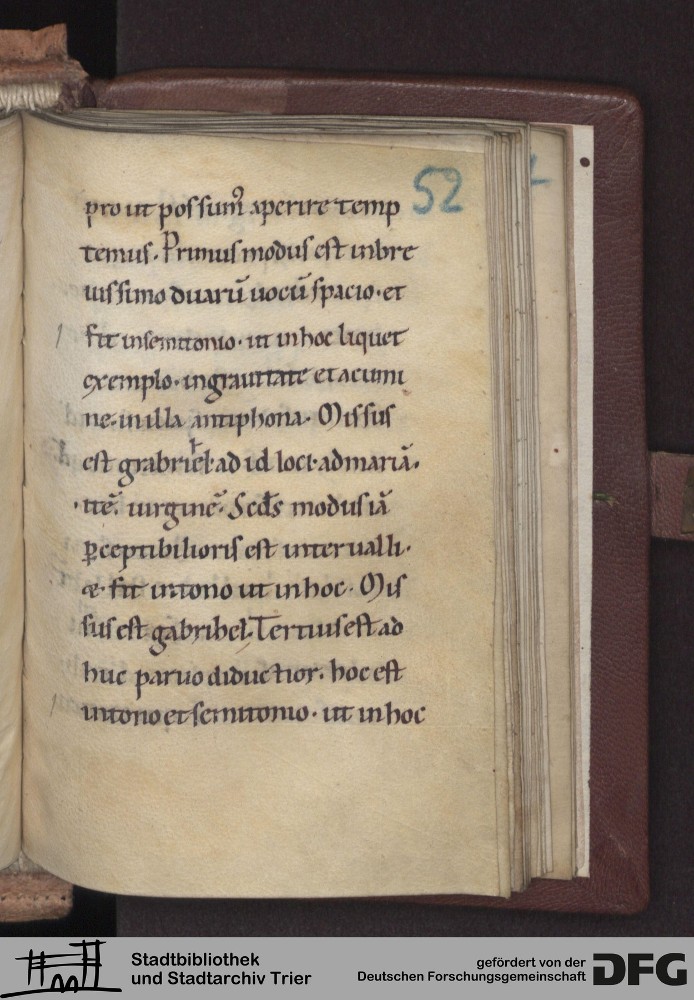 52
pro ut possum᷒ aperire temp
temus. Primus modus est in bre
uissimo duarū uocū spacio. et
fit in semitonio. ut in hoc liquet
exemplo. in grauitate et acumi
ne. in illa antiphona. Missus
est grabriel. ad id loci. ad mariā.
.ttē. uirginē. Scds modus iā
ꝑceptibilioris est interualli.
æ. fit in tono ut in hoc. Mis
sus est gabrihel. Tertius est ad
huc paruo diductior. hoc est
in tono et semitonio. ut in hoc
Stadtbibliothek
und Stadtarchiv Trier
gefördert von der
Deutschen Forschungsgemeinschaft
DFG